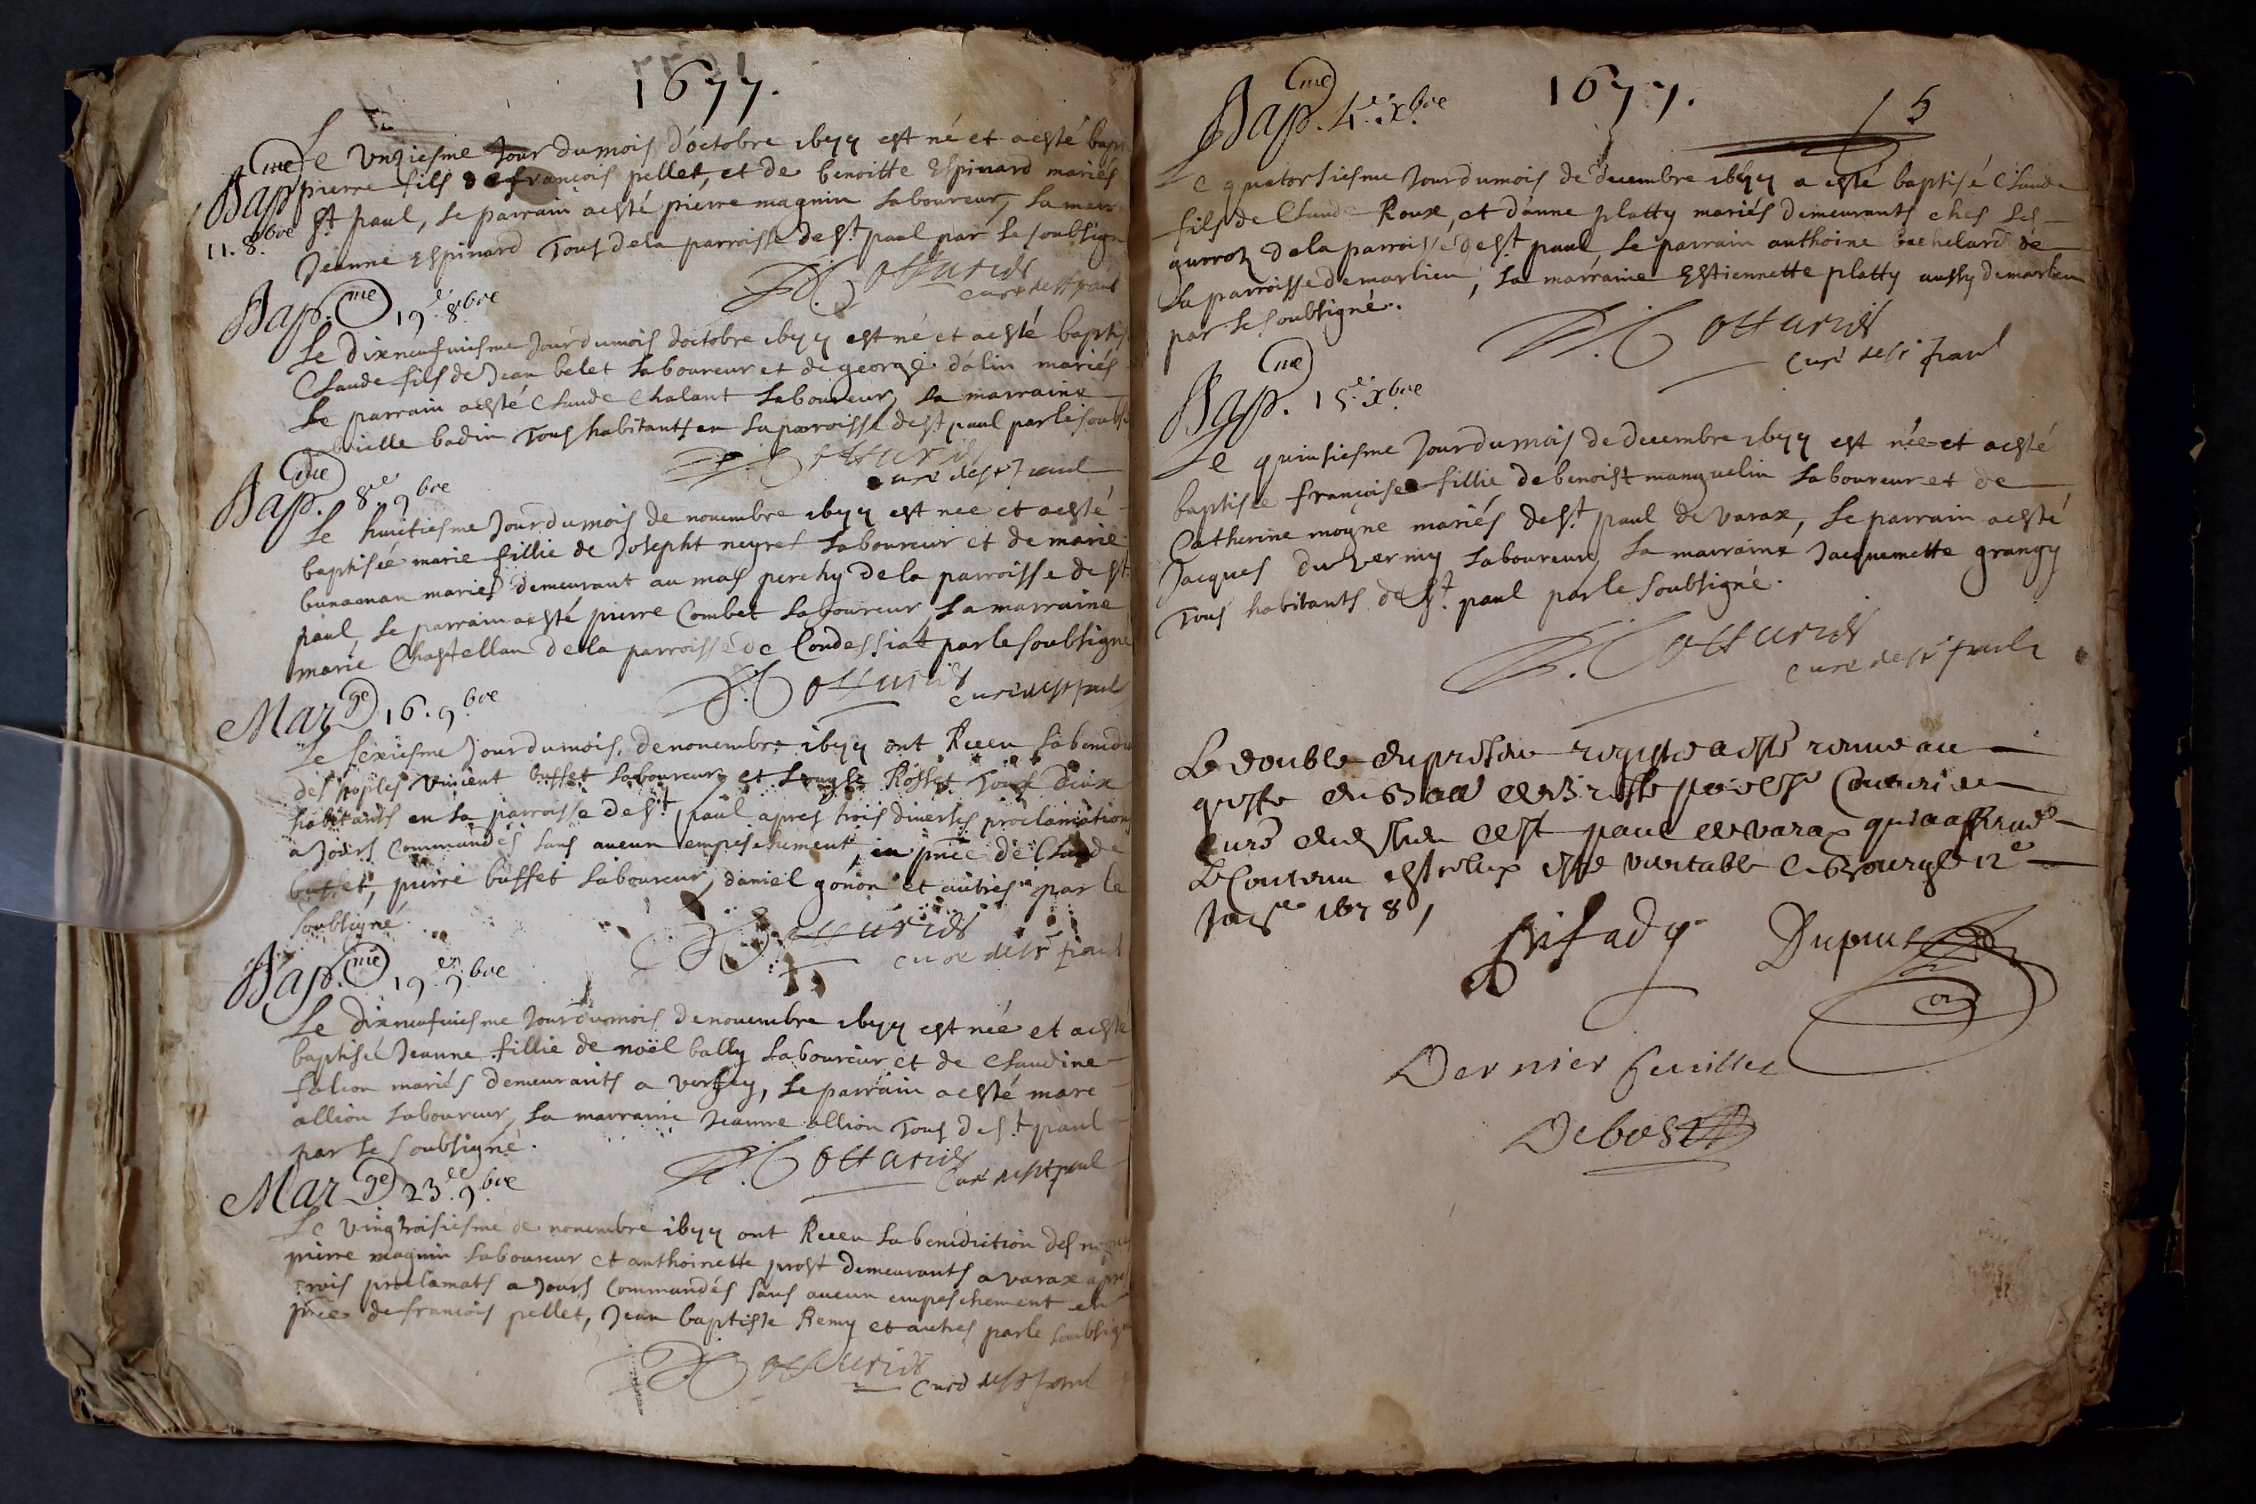 1677.
Bap.me
11. 8bre
Le unziesme Jour du mois d'octobre 1677 est né et a esté bapt
pierre fils de françois pellet, et de benoitte Espinard mariés
St paul, le parrain a esté pierre magnin laboureur, la marr
Jeanne Espinard Tous de la parroisse de St paul par le soubsign
curé de St paul
Bap.me 19e 8bre
Le dixneufuiesme Jour du mois d'octobre 1677 est né et a esté baptis
Claude fils de Jean belet laboureur et de george dalin mariés
le parrain a esté Claude Chalant laboureur, la marraine
badin Tous habitants en la parroisse de St paul par le soubs
curé de St paul
Bap.me 8e 9bre
Le huictiesme Jour du mois de novembre 1677 est née et a esté
baptisée marie fillie de Josepht neyret laboureur et de marie
mariés demeurant au mas perchy de la parroisse de St
paul, le parrain a esté pierre Combet laboureur, la marraine
marie Chastellan de la parroisse de Condessiat par le soubsigné
curé de St paul
Mar.ge 16. 9bre
Le sexiesme Jour du mois de nouembre 1677 ont Receu la benedi
des Vincent buffet laboureur, et Rosset Tous deux
habitants en la parroisse de St paul apres trois diuerses proclamations
a Jours Commandés sans aucun empeschement, en pnce de Claude
buffet, pierre buffet laboureur, daniel gonon et autres par le
soubsigné
curé de St paul
Bap.me 19e 9bre
Le dixneufuiesme Jour du mois de nouembre 1677 est née et a esté
baptisé Jeanne fillie de noël bally laboureur et de Claudine
falcon mariés demeurants a verfey, le parrain a esté marc
allion laboureur, la marraine Jeanne allion Tous de St paul
par le soubsigné.
Curé de St paul
Mar.ge 23e 9bre
Le vingtroisiesme de nouembre 1677 ont Receu la benediction des
pierre magnin laboureur et anthoinette prost demeurants a varax apres
trois proclamats a Jours Commandés sans aucun empeschement en
pnce de francois pellet, Jean baptiste Remy et autres par le soubsign
curé de St paul
1677.
15
Bap.me 4e Xbre
Le quatorsiesme Jour du mois de decembre 1677 a esté baptisé Claude
fils de Claude Roux, et d'anne platty mariés demeurants ches les
de la parroisse de St paul, le parrain anthoine bachelard de
la parroisse de marlieu, la marraine Estiennette platty aussy de marlieu
par le soubsigné.
curé de St paul
Bap.me 15e Xbre
Le quinsiesme Jour du mois de decembre 1677 est née et a esté
baptisée françoise fillie de benoist manguelin laboureur et de
Catherine moyne mariés de St paul de varax, le parrain a esté
Jacques du vernay laboureur, la marraine Jacquemette grangy
Tous habitants de St paul par le soubsigné.
curé de St paul
Le double du present registre a esté
greffe du
curé dudit lieu de St paul de varax qui a affirmé
le Contenu estre veritable a Bourg le 12e
1678
Dupuis
Dernier feuillet
Debost